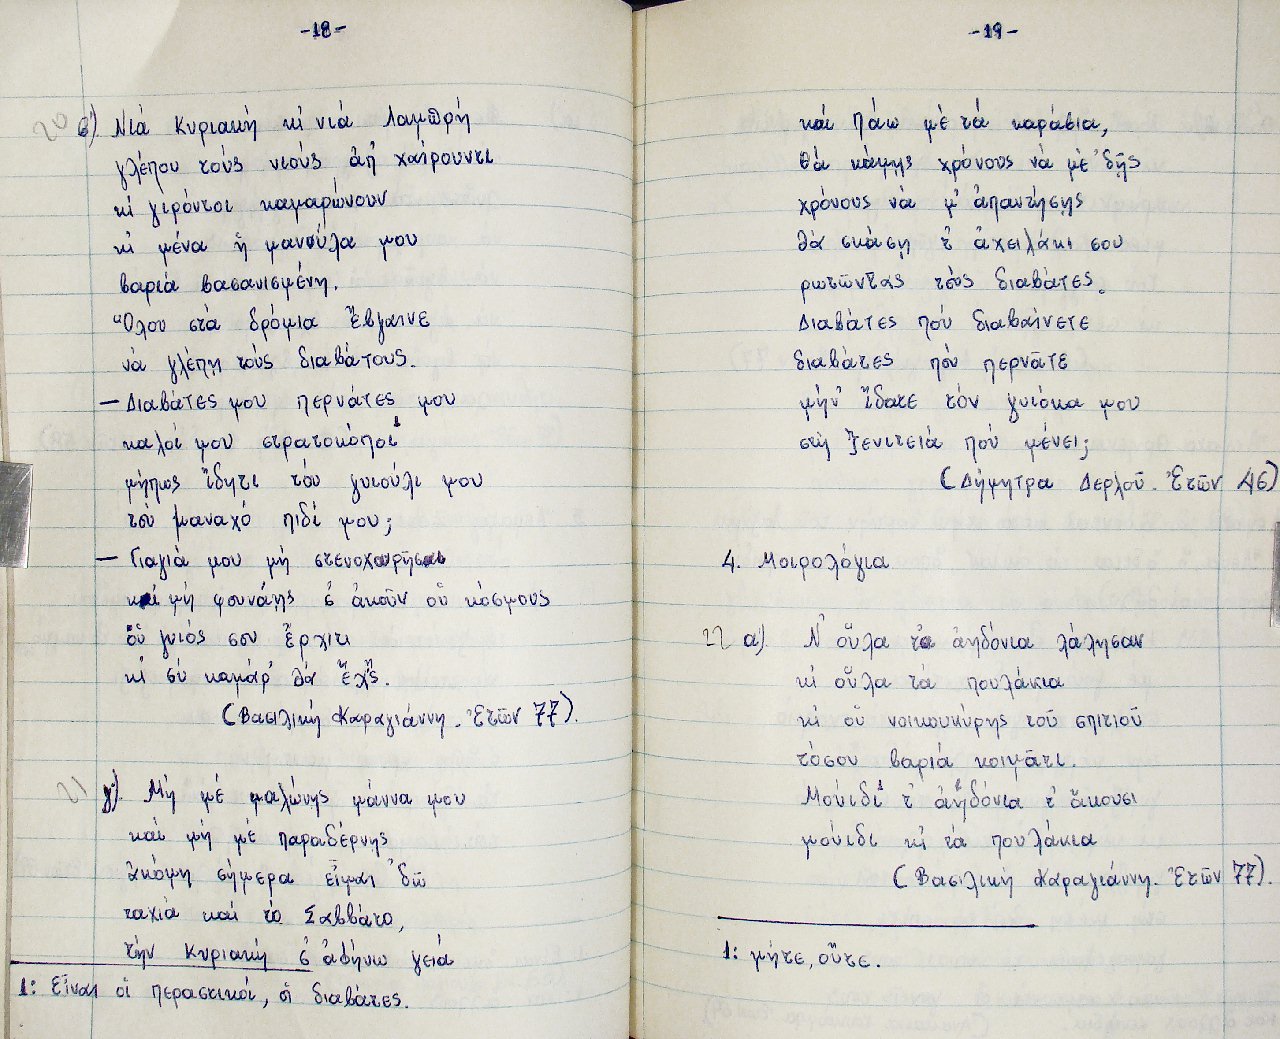 -18-
20 β'). Νιά Κυριακή κι νιά Λαμπρή
γλέπου τούς νιούς ἀπ' χαίρουντι
κι γιρόντοι καμαρώνουν
κι μένα ἡ μανούλα μου
βαριά βασανισμένη.
Ὅλου στά δρόμια ἔβγαινε
νά γλέπῃ τούς διαβάτους.
— Διαβάτες μου περνάτες μου
καλοί μου στρατοκόποι¹
μήπως ἴδητι τόυ γυιούλι μου
τόυ μαναχό πιδί μου;
— Γιαγιά μου μή στενοχουρῆσαι
καί μή φουνάῃς σ' ἀκοῦν οὗ κόσμους
οὗ γυιός σου ἔρχιτι
κι σύ καμάρ' θά ἔχῃς.
(Βασιλική Καραγιάννη. Ἐτῶν 77).
21 γ'). Μή μέ μαλώνῃς μάννα μου
καί μή μέ παραδέρνῃς
ἀκόμη σήμερα εἶμαι 'δῶ
ταχιά καί τό Σαββάτο,
τήν Κυριακή σ' ἀφήνω γειά
1: Εἶναι οἱ περαστικοί, οἱ διαβάτες.
-19-
καί πάω μέ τά καράβια,
θά κάμῃς χρόνους νά μέ 'δῇς
χρόνους νά μ' ἀπαντήσῃς
θά σκάσῃ τ' ἀχειλάκι σου
ρωτῶντας τούς διαβάτες.
Διαβάτες πού διαβαίνετε
διαβάτες πού περνᾶτε
μήν' ἴδατε τόν γυιόκα μου
στή ξενιτειά πού μένει;
(Δήμητρα Δερλοῦ. Ἐτῶν 46)
4. Μοιρολόγια
22 α'). Ν' οὗλα τα ἀηδόνια λάλησαν
κι οὗλα τά πουλάκια
κι οὗ νοικουκύρης τοῦ σπιτιοῦ
τόσου βαριά κοιμᾶτι.
Μούιδι¹ τ' ἀηδόνια τ' ἄκουσι
μούιδι κι τά πουλάκια
(Βασιλική Καραγιάννη. Ἐτῶν 77).
1: μήτε, οὔτε.